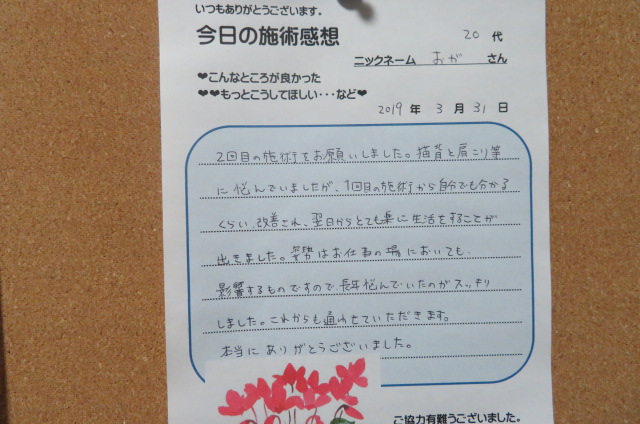 いつもありがとうございます。
今日の施術感想
20 代
ニックネーム おが さん
❤こんなところが良かった
❤❤もっとこうしてほしい・・・など❤
2019 年 3 月 31 日
2回目の施術をお願いしました。猫背と肩こり等
に悩んでいましたが、1回目の施術から自分でも分かる
くらい改善され、翌日からとても楽に生活をすることが
出きました。姿勢はお仕事の場においても、
影響するものですので、長年悩んでいたのがスッキリ
しました。これからも通わせていただきます。
本当にありがとうございました。
ご協力有難うございました。